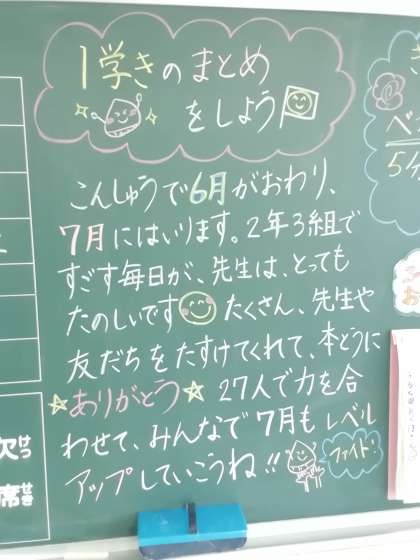 1学きのまとめ
をしよう
こんしゅうで6月がおわり、
7月にはいります。2年3組で
すごす毎日が、先生は、とっても
たのしいです たくさん、先生や
友だちをたすけてくれて、本どうに
☆ありがとう☆ 27人で力を合
わせて、みんなで7月もレベル
アップしていこうね!!
ファイト!
5分
欠けつ
席せき